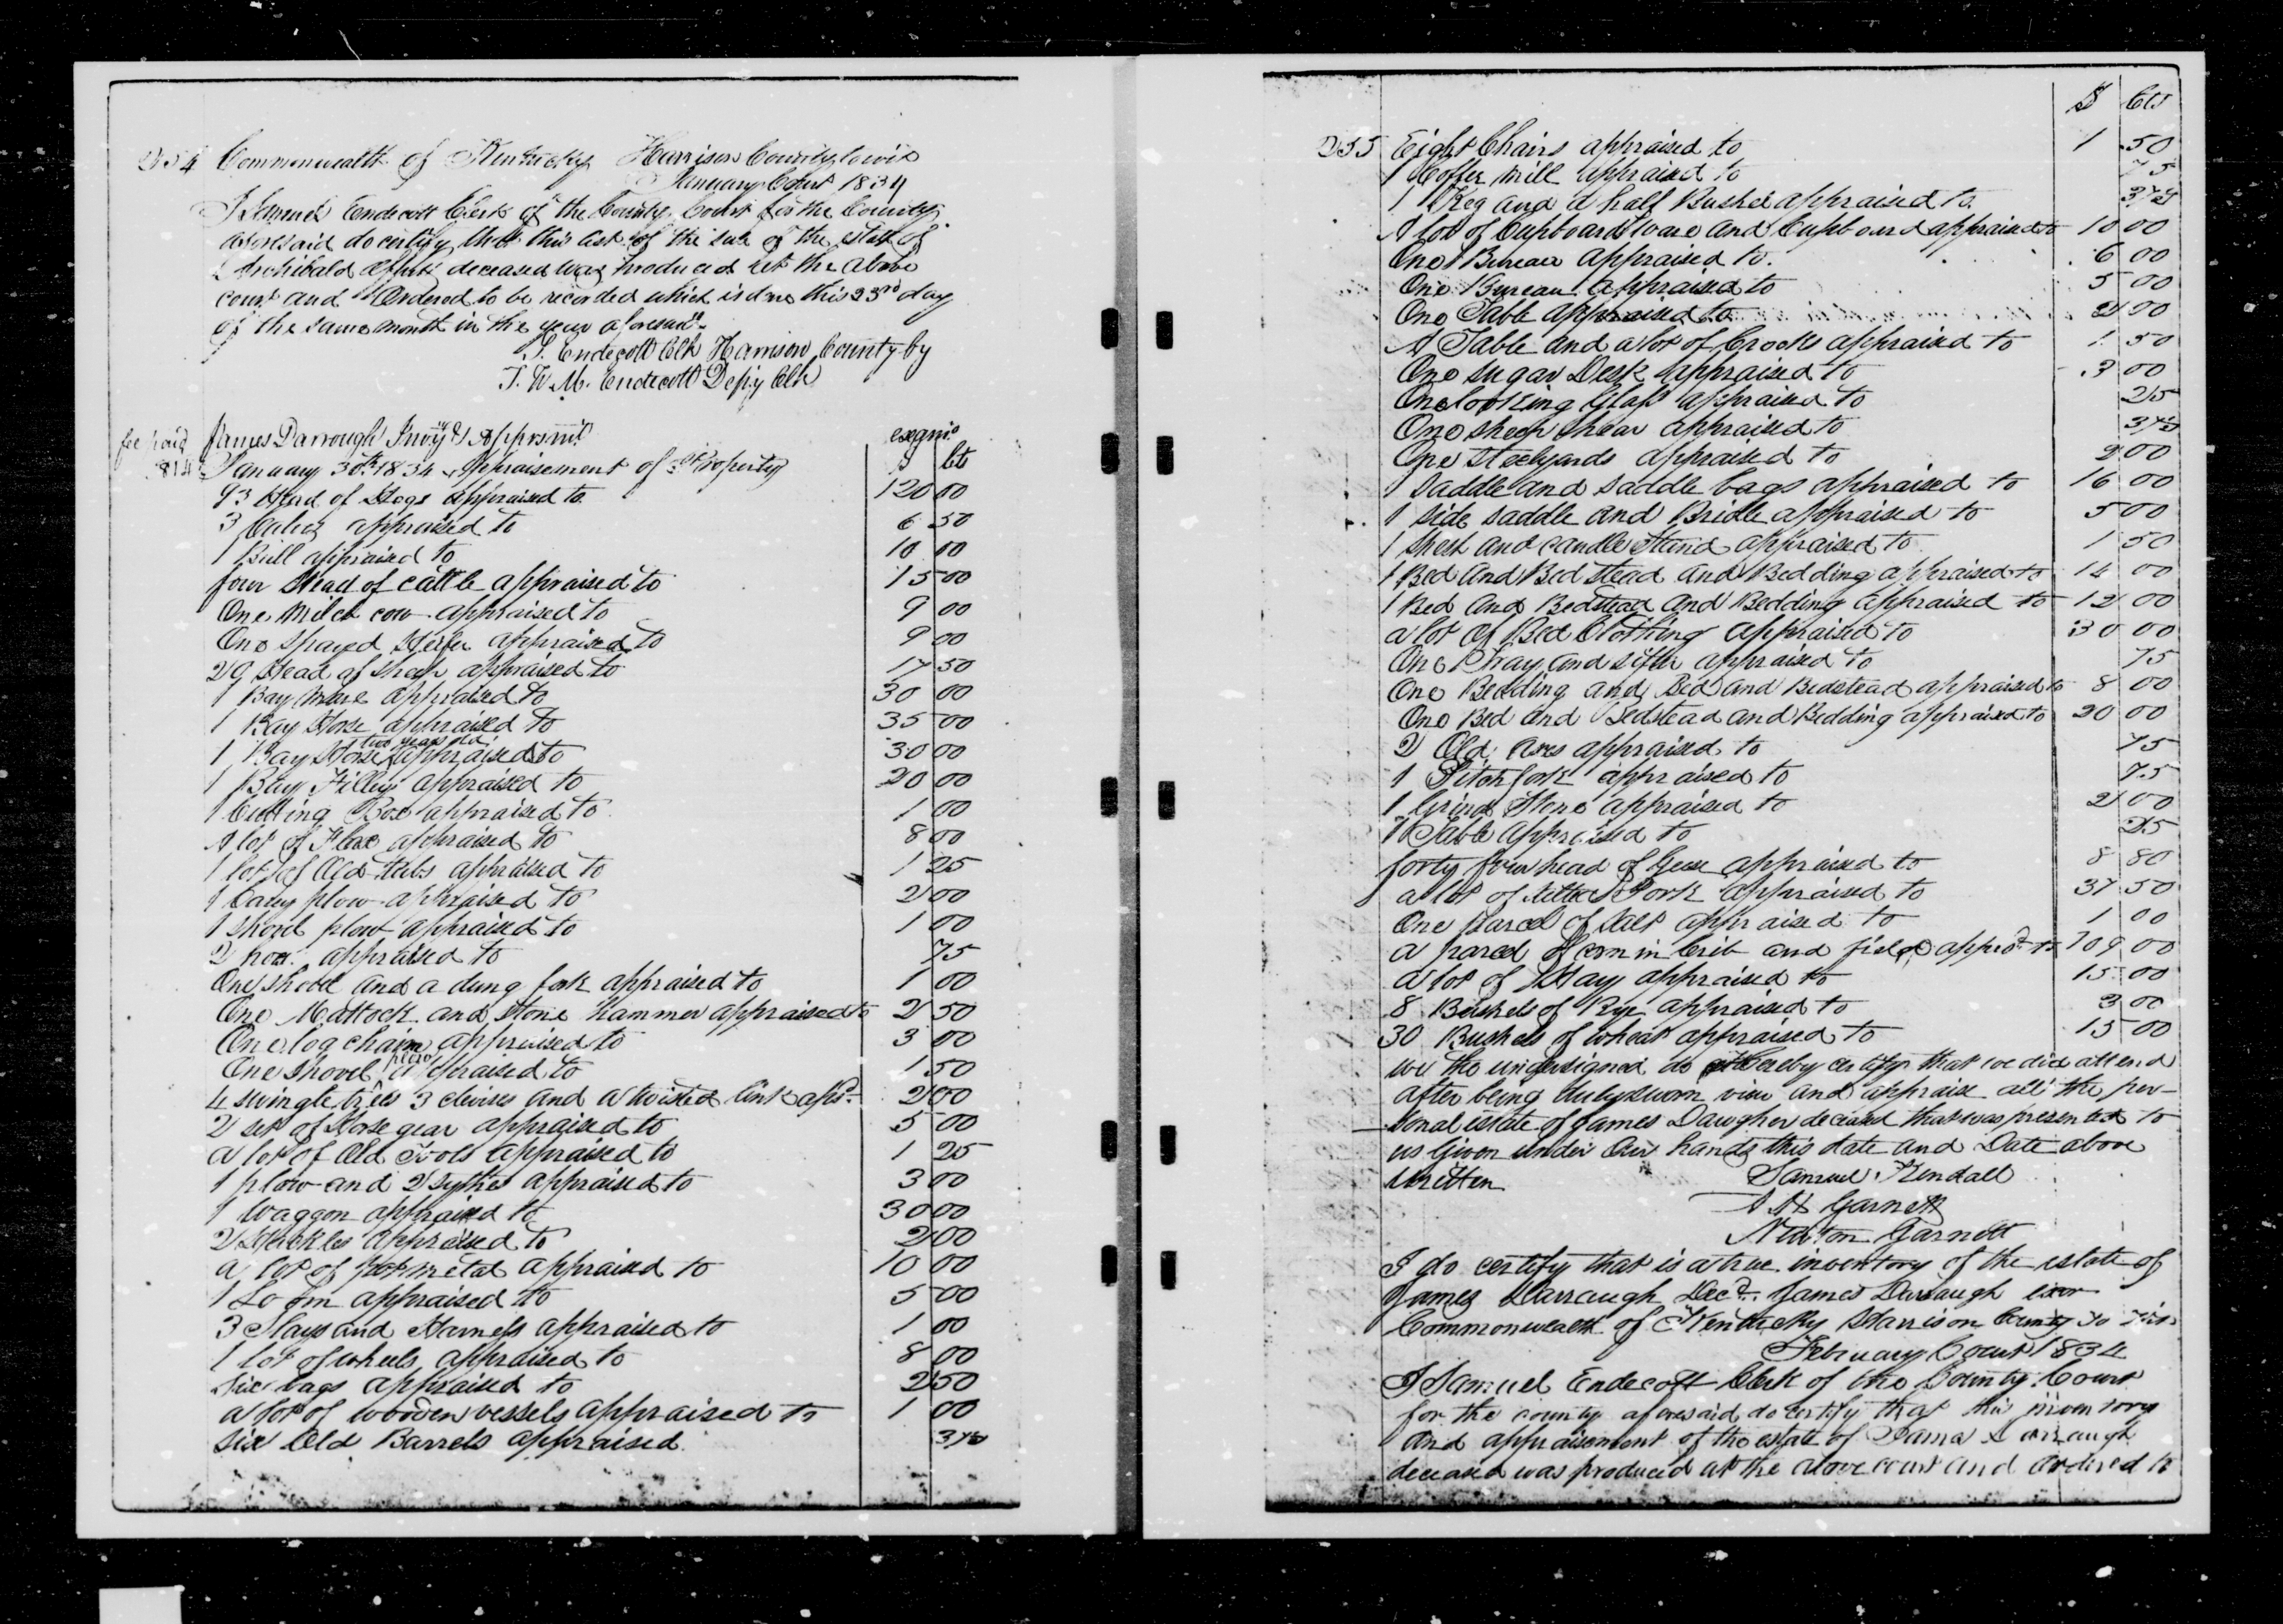 254 Commonwealth of Kentucky Harrison County, towit
January Court 1834
I Samuel Endecott Clerk of the County Court for the County
aforesaid do certify that this List of the sale of the estate of
Archibald deceased was produced at the above
court and Ordered to be recorded which is done this 23rd day
of the same month in the year aforesaid
S. Endecott Clk Harrison County by
T. W. M. Endecott Depty Clk
fee paid James Darrough Invy & Apprsmt examd
January 30th 1834 Appraisement of Property $ Cts
93 Head of Hogs appraised to 120 00
3 Calves appraised to 6 50
1 Bull appraised to 10 00
four Head of cattle appraised to 15 00
One Milch cow appraised to 9 00
One Spayed Heifer appraised to 9 00
29 Head of Sheep appraised to 17 50
1 Bay Mare appraised to 30 00
1 Bay Horse appraised to 35 00
1 Bay Horse two years old appraised to 30 00
1 Bay Filley appraised to 20 00
1 Cutting Box appraised to 1 00
A lot of Flax appraised to 8 00
1 lot of Old tubs appraised to 1 25
1 Cary plow appraised to 2 00
1 Shovel plow appraised to 1 00
2 hoes appraised to 75
One shovel and a dung fork appraised to 1 00
One Mattock and Stone hammer appraised to 2 50
One log chain appraised to 3 00
One Shovel plow appraised to 1 50
4 swingle trees 3 clevises and a twisted link apsd 2 00
2 set of Horse gear appraised to 5 00
a lot of Old Tools appraised to 1 25
1 plow and 2 sythes appraised to 3 00
1 Waggon appraised to 30 00
2 Huckles appraised to 2 00
a lot of pot metal appraised to 10 00
1 Loom appraised to 5 00
3 Slays and Harness appraised to 1 00
1 lot of wheels appraised to 8 00
six bags appraised to 2 50
a lot of wooden vessels appraised to 1 00
six Old Barrels appraised 37½
$ Cts
255 Eight Chairs appraised to 1 50
1 Coffee Mill appraised to 75
1 Keg and a half Bushel appraised to 37½
A lot of Cupboard Ware and Cupboard appraised to 10 00
One Bureau appraised to 6 00
One Bureau appraised to 5 00
One Table appraised to 2 00
A Table and a lot of Crocks appraised to 1 50
One Sugar Desk appraised to 3 00
One looking Glass appraised to 25
One sheep shear appraised to 37½
One Steelyards appraised to 2 00
1 Saddle and saddle bags appraised to 16 00
1 side saddle and Bridle appraised to 5 00
1 Chest and candle Stand appraised to 1 50
1 Bed and Bed stead and Bedding appraised to 14 00
1 Bed and Bedstead and Bedding appraised to 12 00
a lot of Bed Clothing appraised to 30 00
One Tray and sifter appraised to 75
One Bedding and Bed and Bedstead appraised to 8 00
One Bed and Bedstead and Bedding appraised to 20 00
2 Old axes appraised to 75
1 Pitchfork appraised to 75
1 Grind Stone appraised to 2 00
1 Table appraised to 25
forty four head of Geese appraised to 8 80
a lot of Pork appraised to 37 50
One Parcel of Salt appraised to 1 00
a parcel of corn in Crib and field apprsd to 109 00
a lot of Hay appraised to 15 00
8 Bushels of Rye appraised to 3 00
30 Bushels of wheat appraised to 15 00
we the undersigned do hereby certify that we did attend
after being duly sworn view and appraise all the per-
sonal estate of James Daugher deceased that was presented to
us Given under Our hands this date and Date above
written Samuel Kendall
A H Garnett
Newton Garnett
I do certify that is a true inventory of the estate of
James Darraugh Decd. James Darraugh exor
Commonwealth of Kentucky Harrison County to wit
February Court 1834
I Samuel Endecott Clerk of the County Court
for the county aforesaid do certify that this inventory
and appraisement of the estate of James Darraugh
deceased was produced at the above court and Ordered to